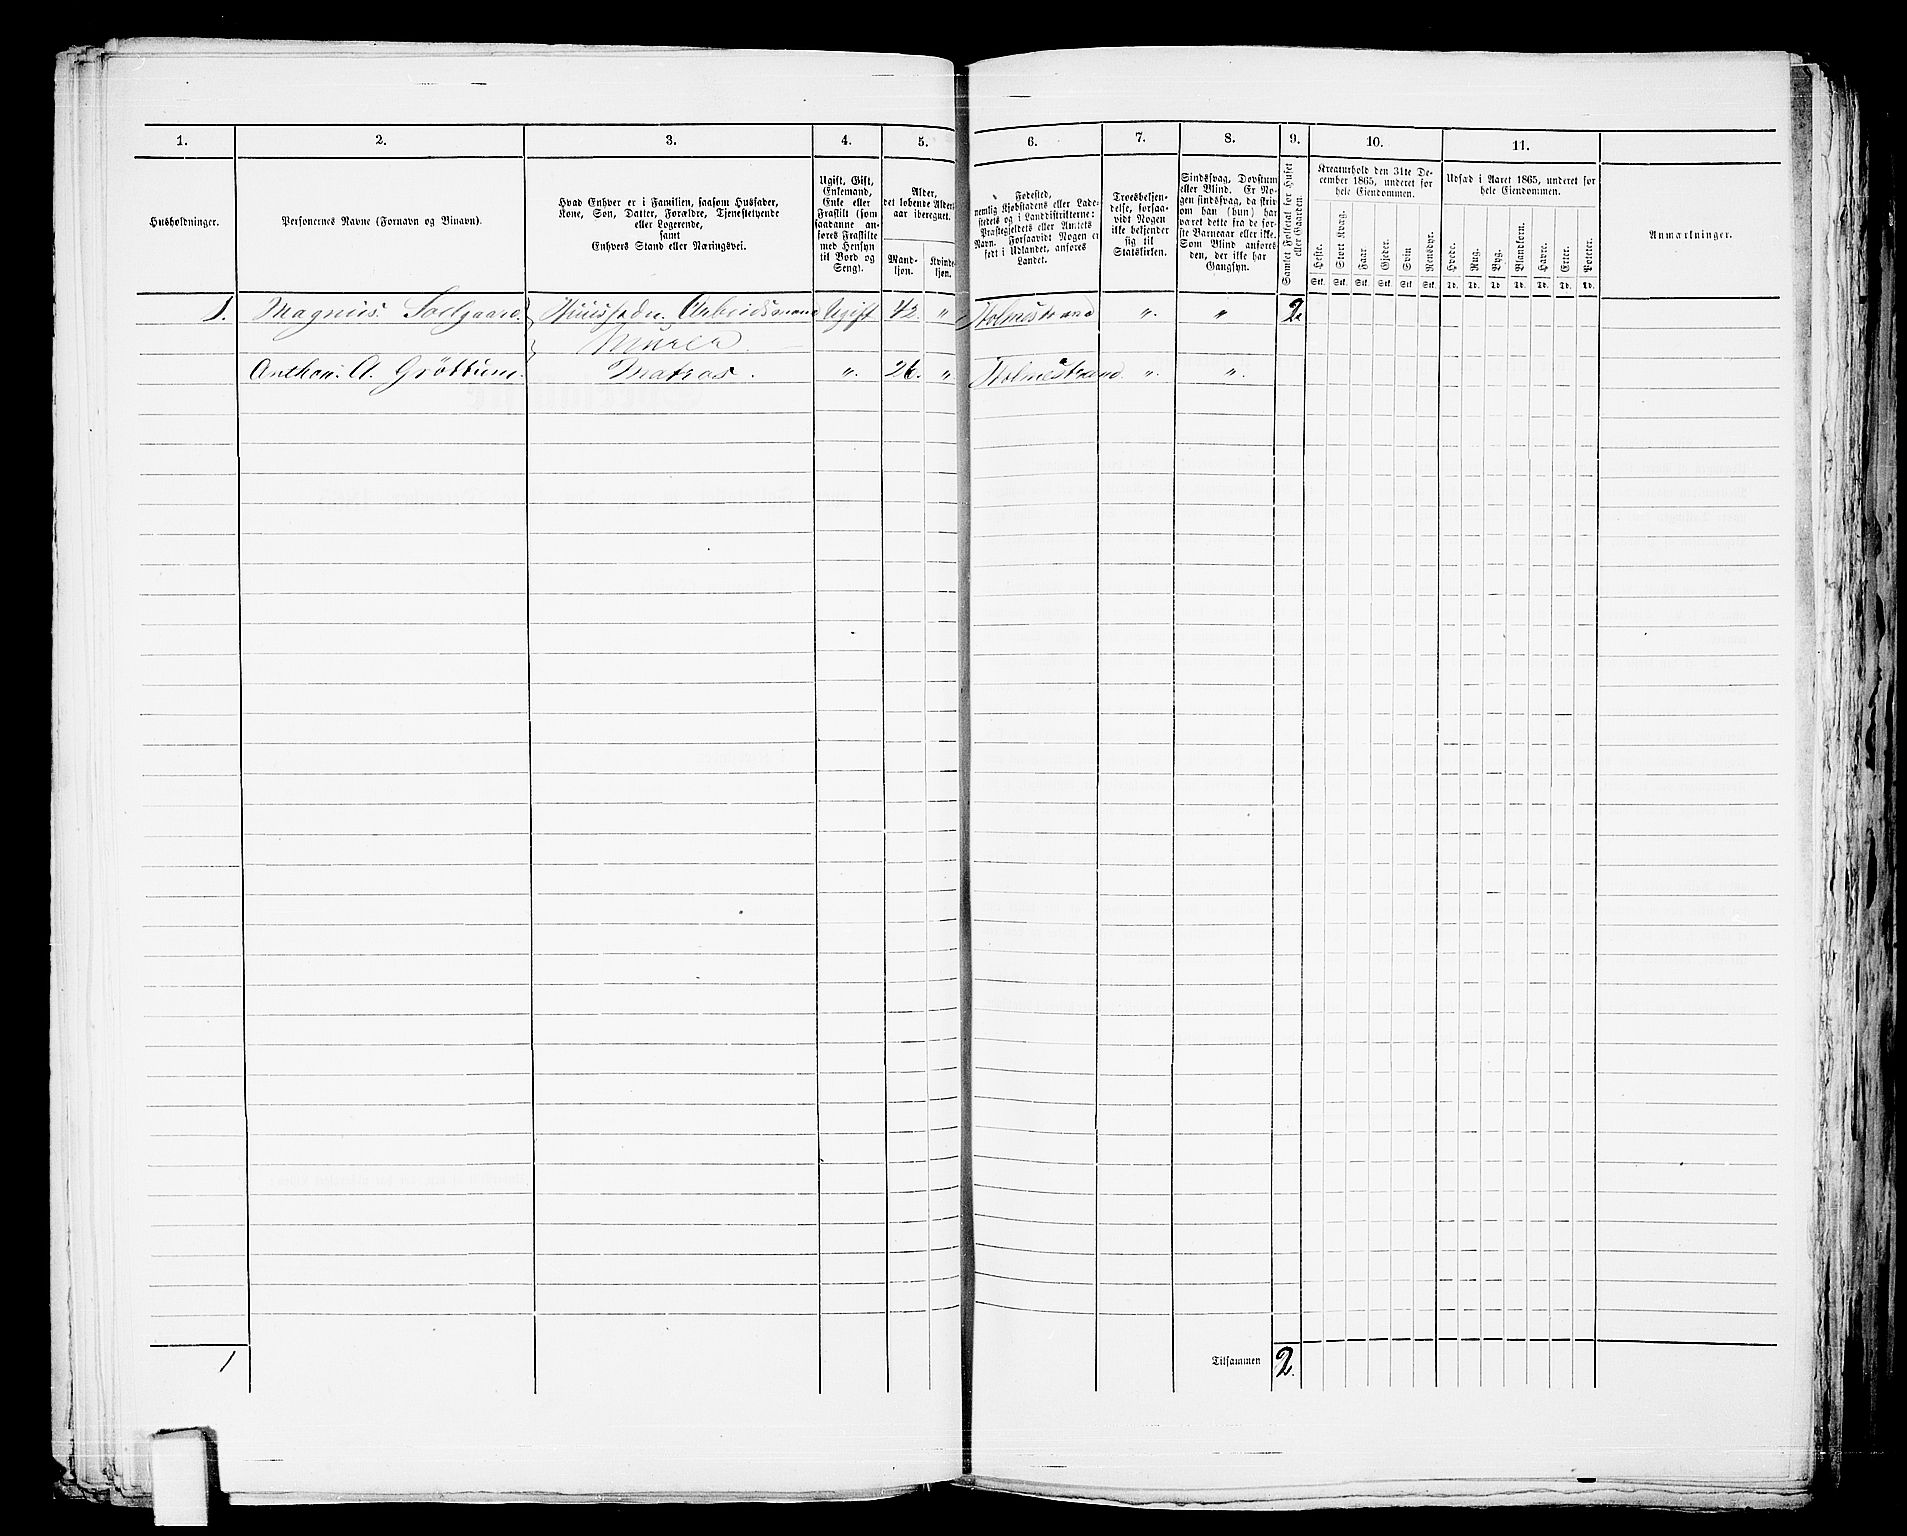 1. 2. 3. 4. 5. 6. 7. 8. 9. 10. 11.
Husholdninger.
Personernes Navne (Fornavn og Binavn).
Hvad Enhver er i Familien, saasom Husfader,
Kone, Søn, Datter, Forældre, Tjenestetyende
eller Logerende,
samt
Enhvers Stand eller Næringsvei.
Ugift, Gift,
Enkemand,
Enke eller
Fraskilt (som
saadanne an-
føres Fraskilte
med Hensyn
til Bord og
Seng).
Alder,
det løbende Alders-
aar iberegnet.
Mand-
kjøn.
Kvinde-
kjøn.
Fødested,
nemlig Kjøbstadens eller Lade-
stedets og i Landdistrikterne:
Præstegjeldets eller Amtets
Navn. Forsaavidt Nogen er
født i Udlandet, anføres
Landet.
Troesbekjen-
delse, forsaa-
vidt Nogen
ikke bekjender
sig til
Statskirken.
Sindssvag, Døvstum
eller Blind. Er No-
gen sindssvag, da skriv
om han (hun) har
været dette fra de før-
ste Barneaar eller ikke.
Som Blind anføres
den, der ikke har
Gangsyn.
Samlet Folketal for Huset
eller Gaarden.
Kreaturhold den 31te De-
cember 1865, underet for
hele Eiendommen.
Heste. Stort Kvæg. Faar. Gjeder. Svin Rensdyr.
Stk. Stk. Stk. Stk. Stk. Stk.
Udsæd i Aaret 1865, underet for
hele Eiendommen.
Hvede. Rug. Byg. Blandkorn. Havre. Erter. Poteter.
Td. Td. Td. Td. Td. Td. Td.
Anmærkninger.
1. Magnus Solgaard. Huusfader. Arbeidsmand Ugift 42. " Holmestrand ". " 2.
Murer.
Anthon. A. Grøttum. Matros. ". 26. " Holmestrand. ". ".
1
Tilsammen 2.